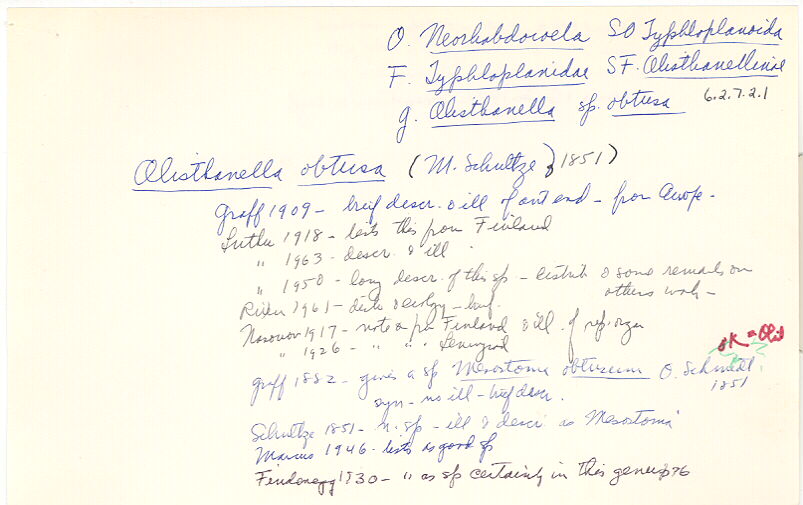 O. Neorhabdocoela SO Typhloplanoida
F. Typhloplanidae SF. Olisthanellinae
g. Olisthanella sp. obtusa 6.2.7.2.1
Olisthanella obtusa (M. Schultze, 1851)
Graff 1909 - brief descr. & ill of ant end - from Europe -
Luther 1918 - lists this from Finland
" 1963 - descr. & ill
" 1950 - long descr. of this sp - distrib & some remarks on
others work -
1961 - distr & ecology - brief.
Nasonov 1917 - note on fr Finland & ill. of rep. organ
" 1926 - " " " Leningrad
OK = Olis
Graff 1882 - gives a sp Mesostoma obtusum O. Schmidt,
1851
syn - no ill - brief descr.
Schultze 1851 - n. sp - ill & descr as Mesostoma
Marcus 1946 - lists as good sp
Findenegg 1930 - " as sp certainly in this genus p76